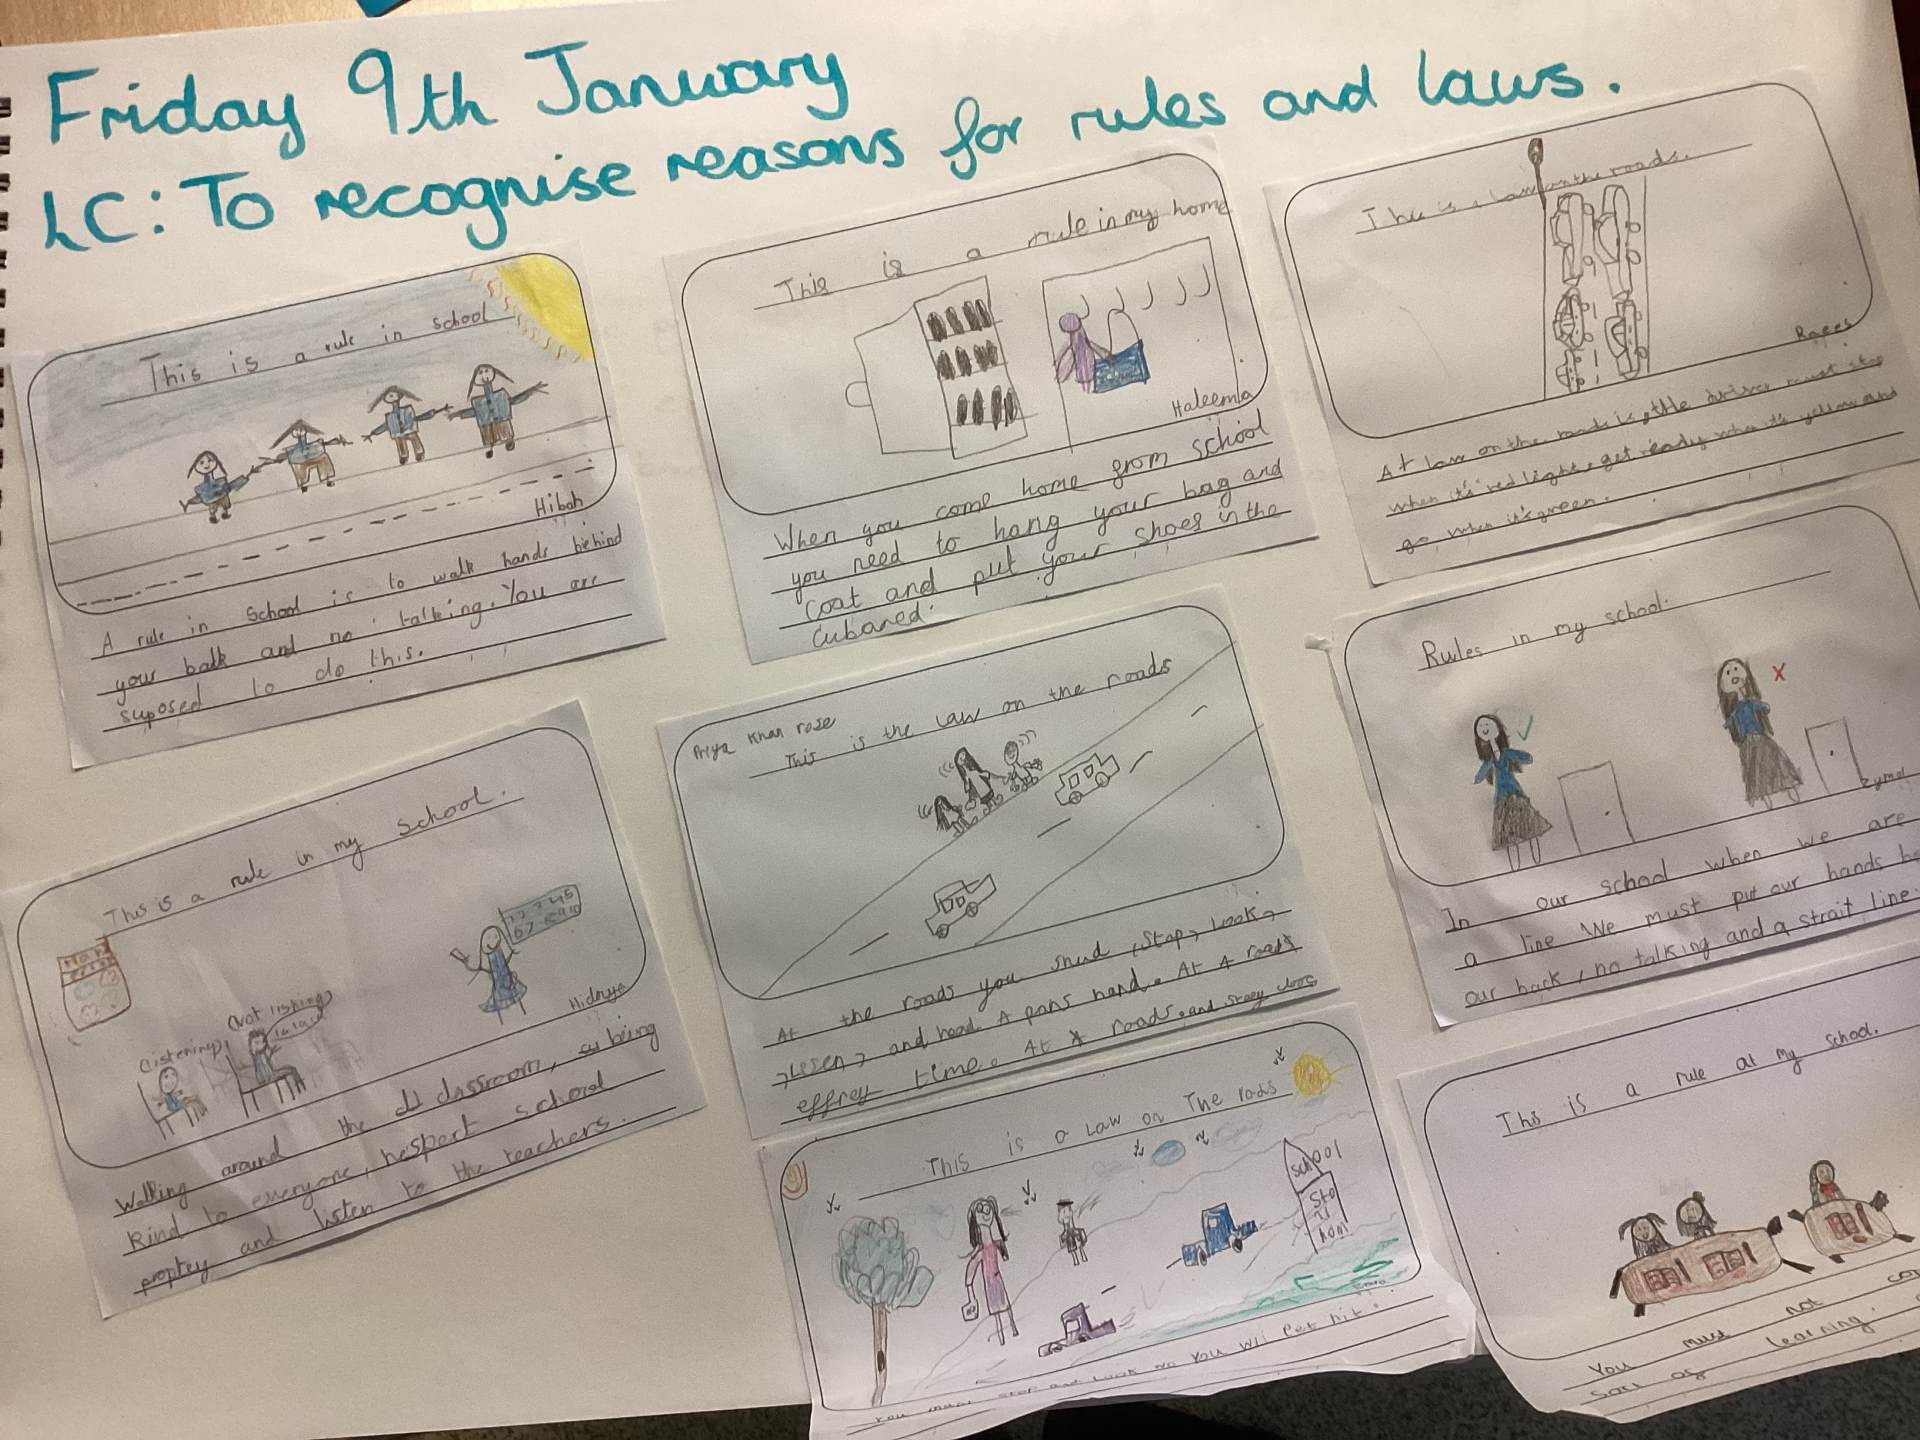 Friday 9th January
LC: To recognise reasons for rules and laws.
This is a rule in school
Hibah
A rule in school is to walk hands behind
your batk and no talking. You are
suposed to do this.
This is a rule in my home
Haleema
When you come home from school
you need to hang your bag and
coat and put your shoes in the
Cubared.
This is a law on the roads.
Raees
At law on the roads is the driver must stop
when it's red light, get ready when it's yellow and
go when it's green.
This is a rule in my school.
(listening)
(Not listning)
lalala
1 2 3 4 5
6 7 8 9 10
Hidaya
Walking around the classroom, being
kind to everyone, respect school
proptey and listen to the teachers.
Priya Khan rose
This is the law on the roads
At the roads you shud , stop, Look,
, Lesen, and hoad A pons hand. At A roads
effrey time. At A roads and staey clos
Rules in my school.
Zymal
In our school when we are
a line we must put our hands
our back, no talking and a strait line.
This is a Law on The roads
School
you must stop and Look or you wil get hit.
This is a rule at my school.
You must not
learning.